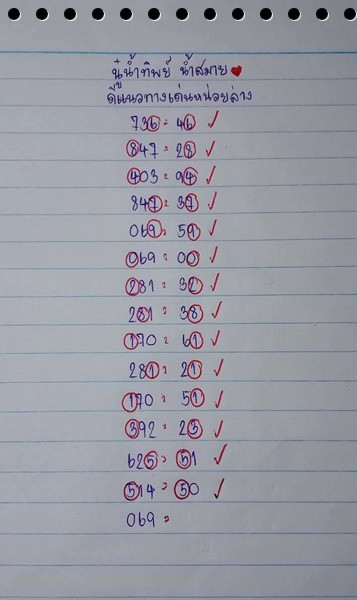 นู๋น้ำทิพย์ น้ำสมาย
ดีแนวทางเด่นหน่อยล่าง
736 = 46 ✓
847 = 28 ✓
403 = 94 ✓
847 = 37 ✓
069 = 59 ✓
069 = 00 ✓
281 = 32 ✓
281 = 38 ✓
170 = 61 ✓
281 = 21 ✓
170 = 51 ✓
392 = 23 ✓
625 = 51 ✓
514 = 50 ✓
069 =